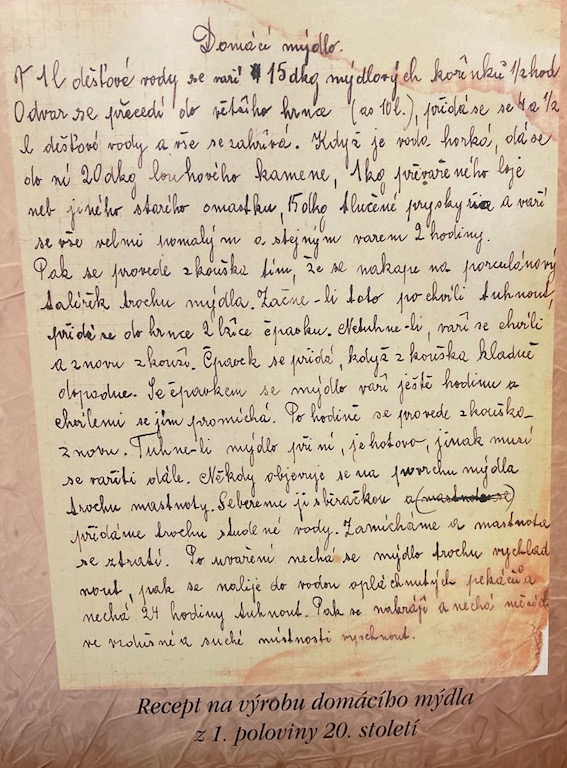 Domácí mýdlo.
V 1 l dešťové vody se vaří 15 dkg mýdlových kořínků 1/2 hod
Odvar se přecedí do většího hrnce (as 10 l.), přidá se se 4 a 1/2
l dešťové vody a vše se zahřívá. Když je voda horká, dá se
do ní 20 dkg louhového kamene, 1 kg převařeného loje
neb jiného starého omastku, 15 dkg tlučené pryskyřice a vaří
se vše velmi pomalým a stejným varem 2 hodiny.
Pak se provede zkouška tím, že se nakape na porculánový
talířek trochu mýdla. Začne-li toto po chvíli tuhnout,
přidá se do hrnce 2 lžíce čpavku. Netuhne-li, vaří se chvíli
a znovu zkouší. Čpavek se přidá, když zkouška kladně
dopadne. Se čpavkem se mýdlo vaří ještě hodinu a
chvílemi se jím promíchá. Po hodině se provede zkouška
znovu. Tuhne-li mýdlo při ní, je hotovo, jinak musí
se vařiti dále. Někdy objevuje se na povrchu mýdla
trochu mastnoty. Sebereme ji sběračkou a
přidáme trochu studené vody. Zamícháme a mastnota
se ztratí. Po uvaření nechá se mýdlo trochu vychlad
nout, pak se nalije do vodou opláchnutých pekáčů a
nechá 24 hodiny tuhnout. Pak se nakrájí a nechá měsíc
ve vzdušné a suché místnosti vyschnout.
Recept na výrobu domácího mýdla
z 1. poloviny 20. století